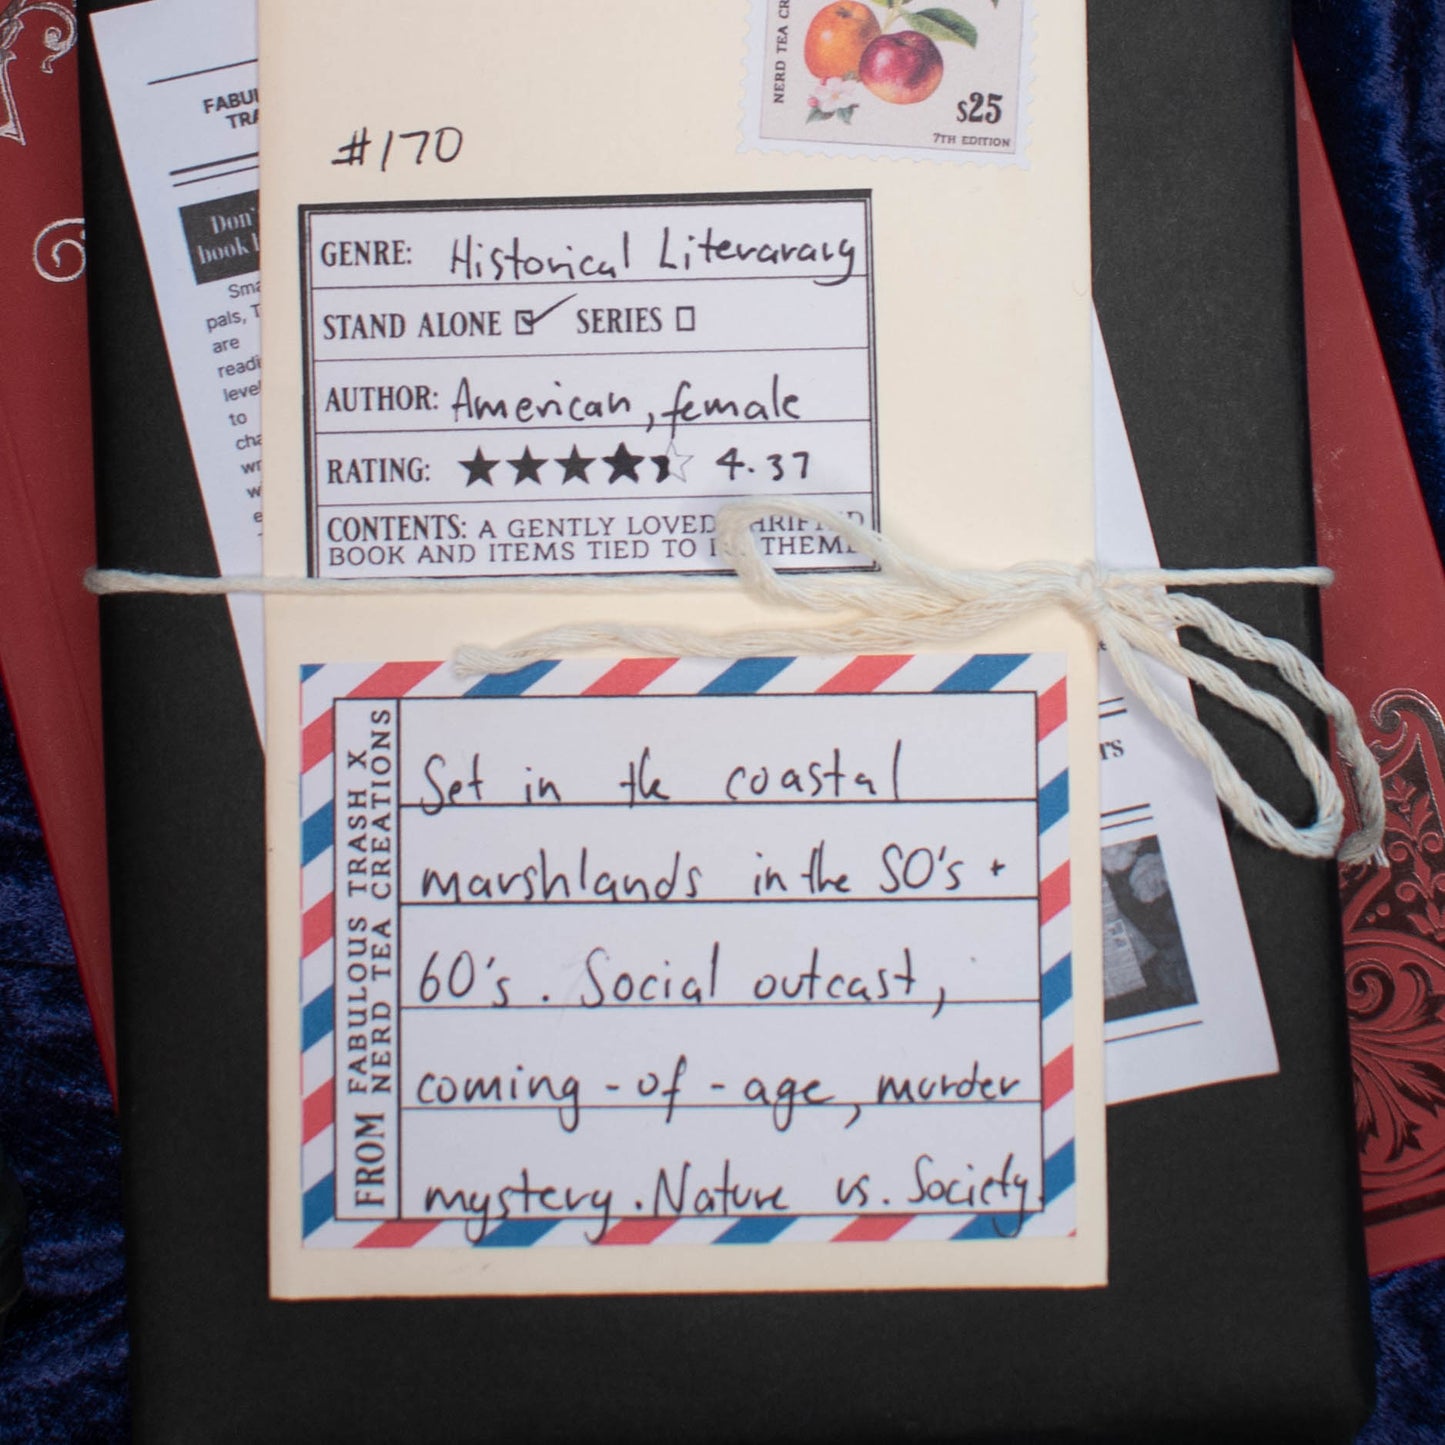 NERD TEA CR
$25
7TH EDITION
FABU
TRA
#170
Don'
book
Sma
pals, T
are
readi
level
to
cha
wr
w
e
GENRE: Historical Literarary
STAND ALONE SERIES
AUTHOR: American, female
RATING: 4.37
CONTENTS: A GENTLY LOVED THRIFTED
BOOK AND ITEMS TIED TO THEME
TS
FROM FABULOUS TRASH X
NERD TEA CREATIONS
Set in the coastal
marshlands in the 50's +
60's. Social outcast,
coming-of-age, murder
mystery. Nature vs. Society.